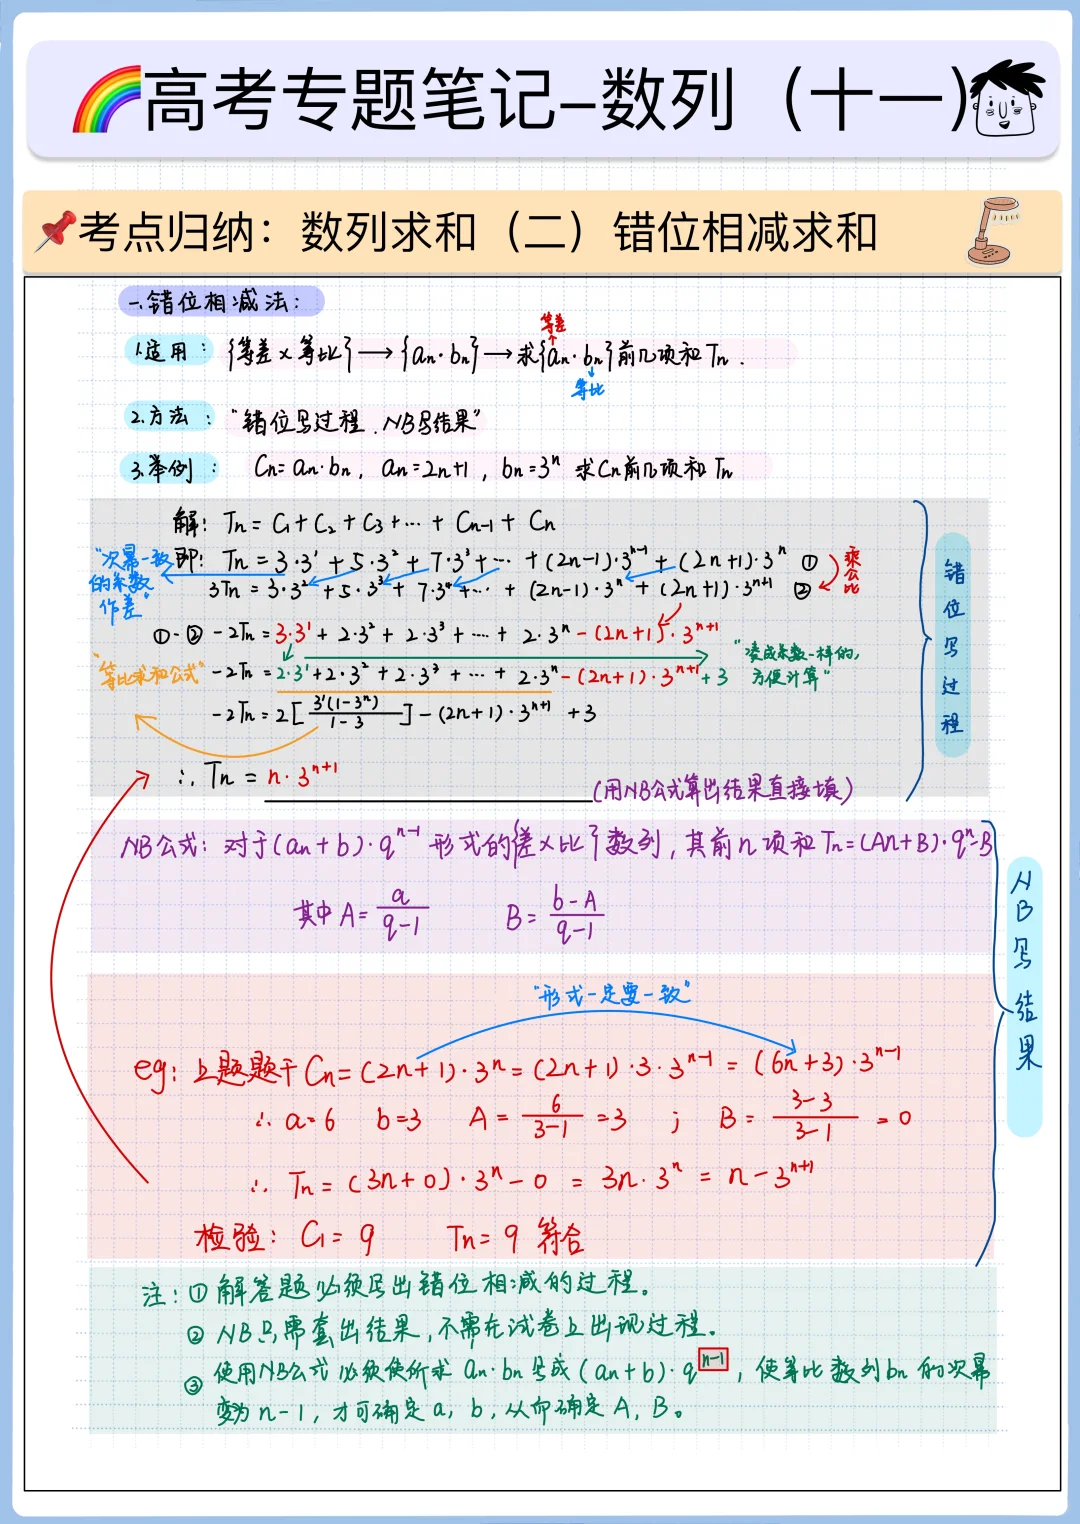 高考专题笔记-数列（十一）
考点归纳：数列求和（二）错位相减求和
一.错位相减法：
等差
1.适用：{等差×等比}→{an·bn}→求{an·bn}前n项和Tn.
等比
2.方法："错位写过程.NB写结果"
3.举例：Cn=an·bn，an=2n+1，bn=3ⁿ 求Cn前n项和Tn
解：Tn=C₁+C₂+C₃+…+Cn-1+Cn
即：Tn=3·3¹+5·3²+7·3³+…+(2n-1)·3ⁿ⁻¹+(2n+1)·3ⁿ ①
3Tn=3·3²+5·3³+7·3⁴+…+(2n-1)·3ⁿ+(2n+1)·3ⁿ⁺¹ ②
"次幂一致
的系数
作差"
乘公比
①-② -2Tn=3·3¹+2·3²+2·3³+…+2·3ⁿ-(2n+1)·3ⁿ⁺¹
"等比求和公式" -2Tn=2·3¹+2·3²+2·3³+…+2·3ⁿ-(2n+1)·3ⁿ⁺¹+3
"凑成系数一样的，
方便计算"
-2Tn=2[3¹(1-3ⁿ)/1-3]-(2n+1)·3ⁿ⁺¹+3
∴Tn=n·3ⁿ⁺¹ (用NB公式算出结果直接填)
错位写过程
NB公式：对于(an+b)·qⁿ⁻¹形式的{差×比}数列，其前n项和Tn=(An+B)·qⁿ-B
其中A=a/q-1 B=b-A/q-1
NB写结果
"形式一定要一致"
eg：上题题干Cn=(2n+1)·3ⁿ=(2n+1)·3·3ⁿ⁻¹=(6n+3)·3ⁿ⁻¹
∴a=6 b=3 A=6/3-1=3 ; B=3-3/3-1=0
∴Tn=(3n+0)·3ⁿ-0=3n·3ⁿ=n-3ⁿ⁺¹
检验：C₁=9 Tn=9 符合
注：①解答题必须写出错位相减的过程。
②NB只需套出结果，不需在试卷上出现过程。
③使用NB公式必须使所求an·bn写成(an+b)·qⁿ⁻¹，使等比数列bn的次幂
变为n-1，才可确定a，b，从而确定A，B。